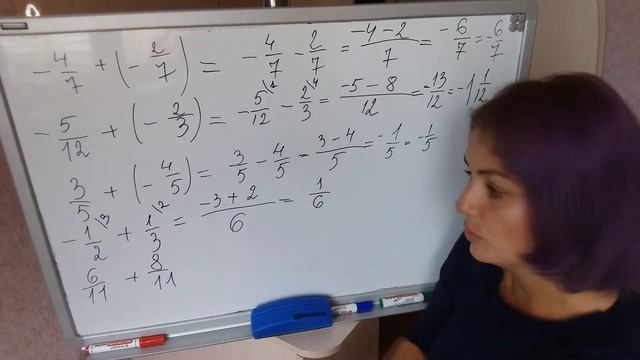 -4/7 + (-2/7) = -4/7 - 2/7 = -4-2/7 = -6/7 = -6/7
-5/12 + (-2/3) = -5/12 \1 - 2/3 \4 = -5-8/12 = -13/12 = -1 1/12
3/5 + (-4/5) = 3/5 - 4/5 = 3-4/5 = -1/5 = -1/5
-1/2 \3 + 1/3 \2 = -3+2/6 = 1/6
6/11 + 8/11